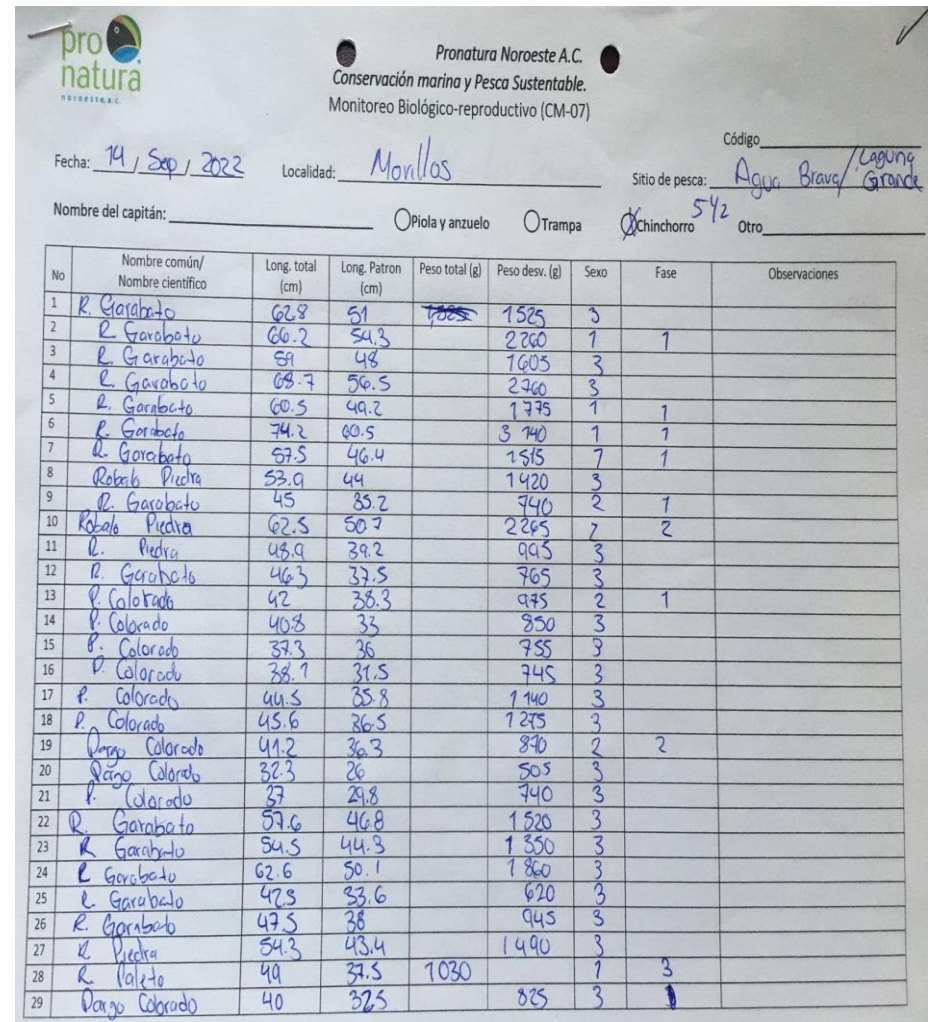 pro
natura
noroeste, a.c.
Pronatura Noroeste A.C.
Conservación marina y Pesca Sustentable.
Monitoreo Biológico-reproductivo (CM-07)
Código
Fecha: 14 / Sep / 2022 Localidad: Morillos Sitio de pesca: Agua Brava / Laguna Grande
Nombre del capitán: Piola y anzuelo Trampa Chinchorro 5 1/2 Otro
No Nombre común/ Nombre científico Long. total (cm) Long. Patron (cm) Peso total (g) Peso desv. (g) Sexo Fase Observaciones
1 R. Garabato 62.8 51 1525 3
2 R Garabato 66.2 54.3 2260 1 1
3 R. Garabato 59 48 1605 3
4 R. Garabato 68.7 56.5 2760 3
5 R. Garabato 60.5 49.2 1775 1 1
6 R. Garabato 74.2 60.5 3 140 1 1
7 R. Garabato 57.5 46.4 1515 1 1
8 Robalo Piedra 53.9 44 1420 3
9 R. Garabato 45 35.2 740 2 1
10 Robalo Piedra 62.5 50.7 2265 2 2
11 R. Piedra 48.9 39.2 995 3
12 R. Garabato 46.3 37.5 765 3
13 P. Colorado 42 38.3 975 2 1
14 P. Colorado 40.8 33 850 3
15 P. Colorado 37.3 36 755 3
16 P. Colorado 38.1 31.5 745 3
17 P. Colorado 44.5 35.8 1 140 3
18 P. Colorado 45.6 36.5 1 275 3
19 Pargo Colorado 41.2 36.3 890 2 2
20 Pargo Colorado 32.3 26 505 3
21 P. Colorado 37 29.8 740 3
22 R. Garabato 57.6 46.8 1 520 3
23 R Garabato 54.5 44.3 1 350 3
24 R Garabato 62.6 50.1 1 860 3
25 R. Garabato 42.5 33.6 620 3
26 R. Garabato 47.5 38 945 3
27 R Piedra 54.3 43.4 1490 3
28 R Paleto 49 37.5 1030 1 3
29 Pargo Colorado 40 32.5 825 3